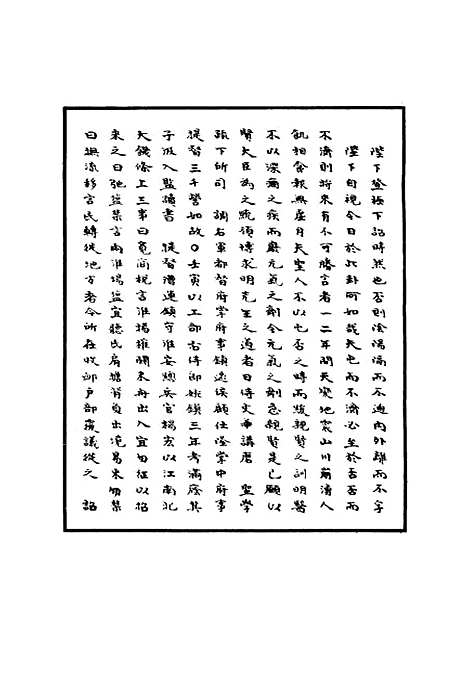 陛下登極下詔時然也否則陰陽隔而不通內外離而不孚
陛下自視今日於此卦何如哉夫屯而不濟必至於否否而
不濟則將來有不可勝言者一二年間天變地震山川崩湧人
飢相食報無虛月夫聖人不以屯否之時而緩親賢之訓明醫
不以深痼之疾而廢元氣之劑今元氣之劑急親賢是已願以
賢大臣為之統領博求明先王之道者日侍文華講磨 聖學
疏下所司 調右軍都督府掌府事鎮遠侯顧仕隆掌中府事
提督三千營如故○壬寅以工部右侍郎姚鎮三年考滿廕其
子汲入監讀書 提督漕運鎮守淮安總兵官楊宏以江南北
大饑條上三事曰寬商稅言淮揚權關米舟出入宜勿征以招
來之曰弛鹽禁言兩淮場鹽宜聽民肩擔背負出港易米勿禁
曰撫流移言民轉徙他方者令所在收卹戶部覆議從之 詔